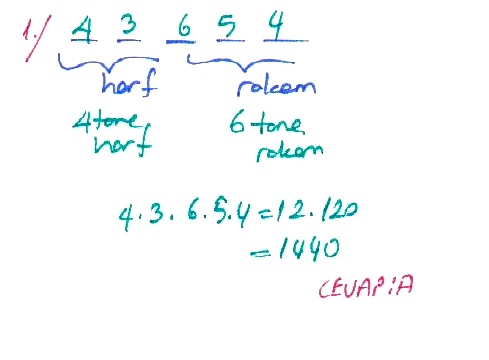 1./ 4 3 6 5 4
harf rakam
4 tane harf 6 tane rakam
4.3.6.5.4=12.120
=1440
CEVAP:A